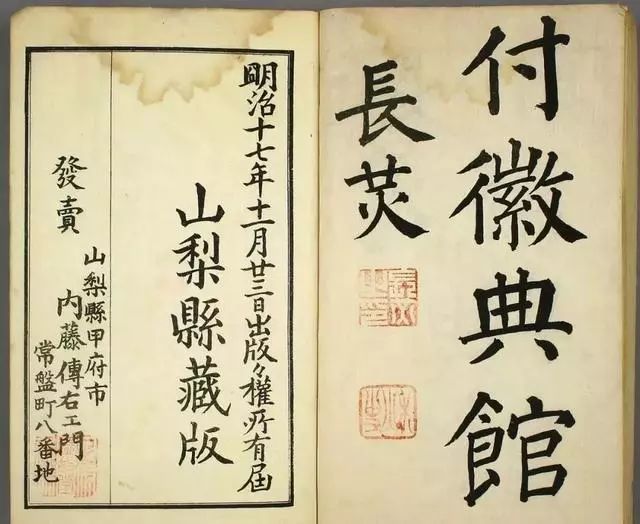 付徽典館
長炗
明治十七年十一月廿三日出版々權所有屆
山梨縣藏版
發賣
山梨縣甲府市
內藤傳右エ門
常盤町八番地